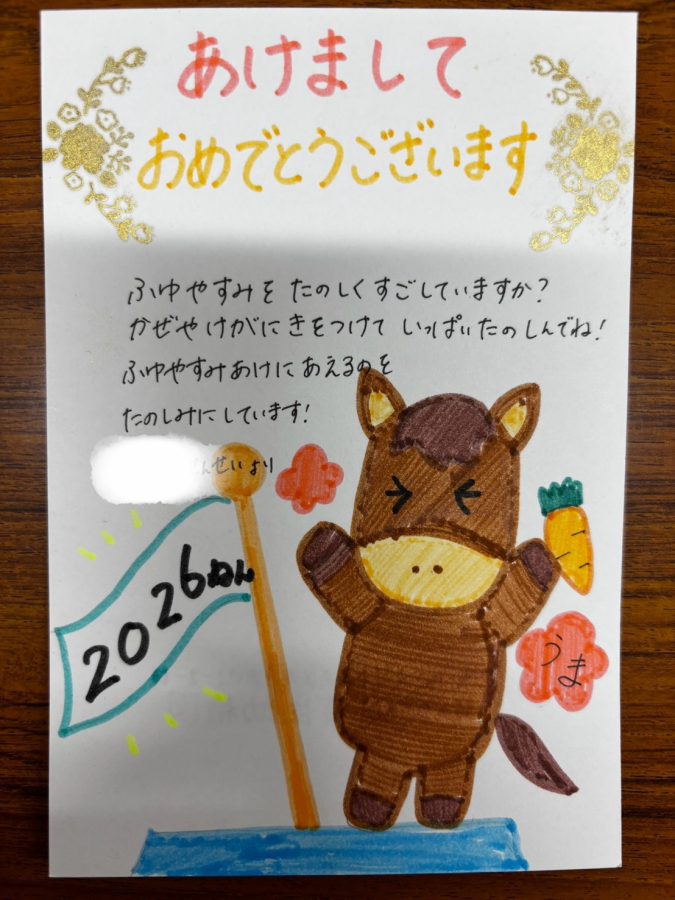 あけまして
おめでとうございます
ふゆやすみを たのしくすごしていますか?
かぜやけがにきをつけて いっぱいたのしんでね!
ふゆやすみあけにあえるのを
たのしみにしています!
んせいより
2026ねん
うま